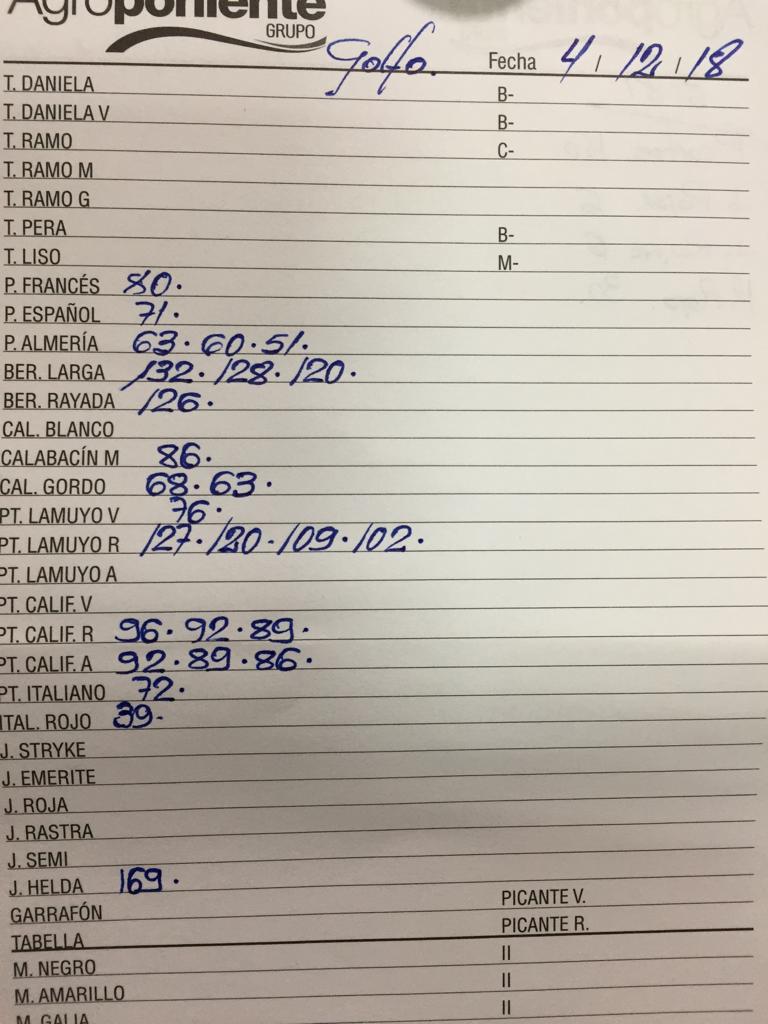 Agroponiente
GRUPO
Golfo. Fecha 4 / 12 / 18
T. DANIELA B-
T. DANIELA V B-
T. RAMO C-
T. RAMO M
T. RAMO G
T. PERA B-
T. LISO M-
P. FRANCÉS 80.
P. ESPAÑOL 71.
P. ALMERÍA 63. 60. 51.
BER. LARGA 132. 128. 120.
BER. RAYADA 126.
CAL. BLANCO
CALABACÍN M 86.
CAL. GORDO 68. 63.
PT. LAMUYO V 76.
PT. LAMUYO R 127. 120. 109. 102.
PT. LAMUYO A
PT. CALIF. V
PT. CALIF. R 96. 92. 89.
PT. CALIF. A 92. 89. 86.
PT. ITALIANO 72.
ITAL. ROJO 39.
J. STRYKE
J. EMERITE
J. ROJA
J. RASTRA
J. SEMI
J. HELDA 169.
GARRAFÓN PICANTE V.
TABELLA PICANTE R.
M. NEGRO II
M. AMARILLO II
M. GALIA II